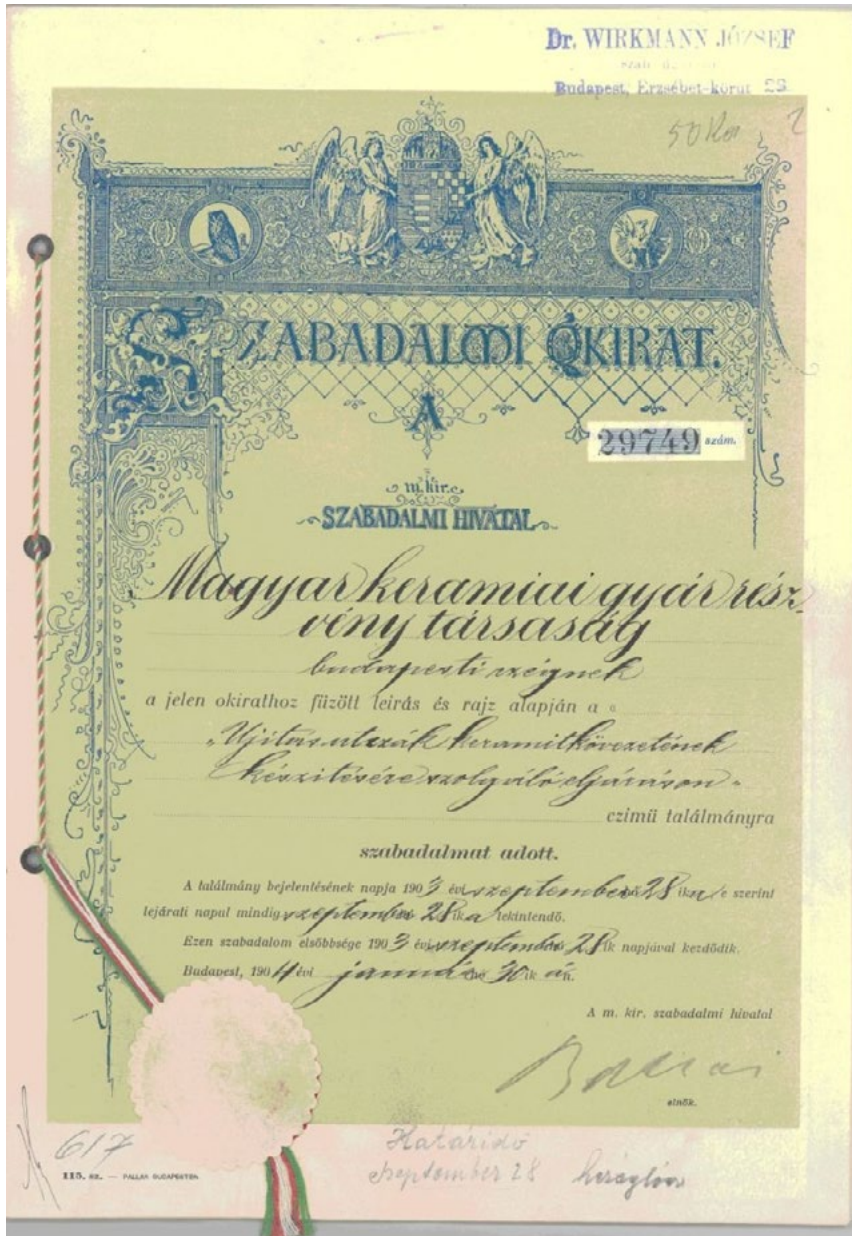 Dr. WIRKMANN JÓZSEF
Budapest, Erzsébet-körut 29
50 Kor
SZABADALMI OKIRAT.
A
29749 szám.
m. kir.
SZABADALMI HIVATAL
Magyar keramiai gyár rész-
vény társaság
budapesti czégnek
a jelen okirathoz füzött leirás és rajz alapján a
„Ujitás utczák keramitkövezetének
készitésére szolgáló eljáráson"
czimü találmányra
szabadalmat adott.
A találmány bejelentésének napja 1903 évi szeptember 28 ika, e szerint
lejárati napul mindig szeptember 28 ika tekintendő.
Ezen szabadalom elsőbbsége 1903 évi szeptember 28 ik napjával kezdődik.
Budapest, 1904 évi január hó 30 ik án.
A m. kir. szabadalmi hivatal
elnök.
617
Határidő
szeptember 28
115. sz. — PALLAS BUDAPESTEN